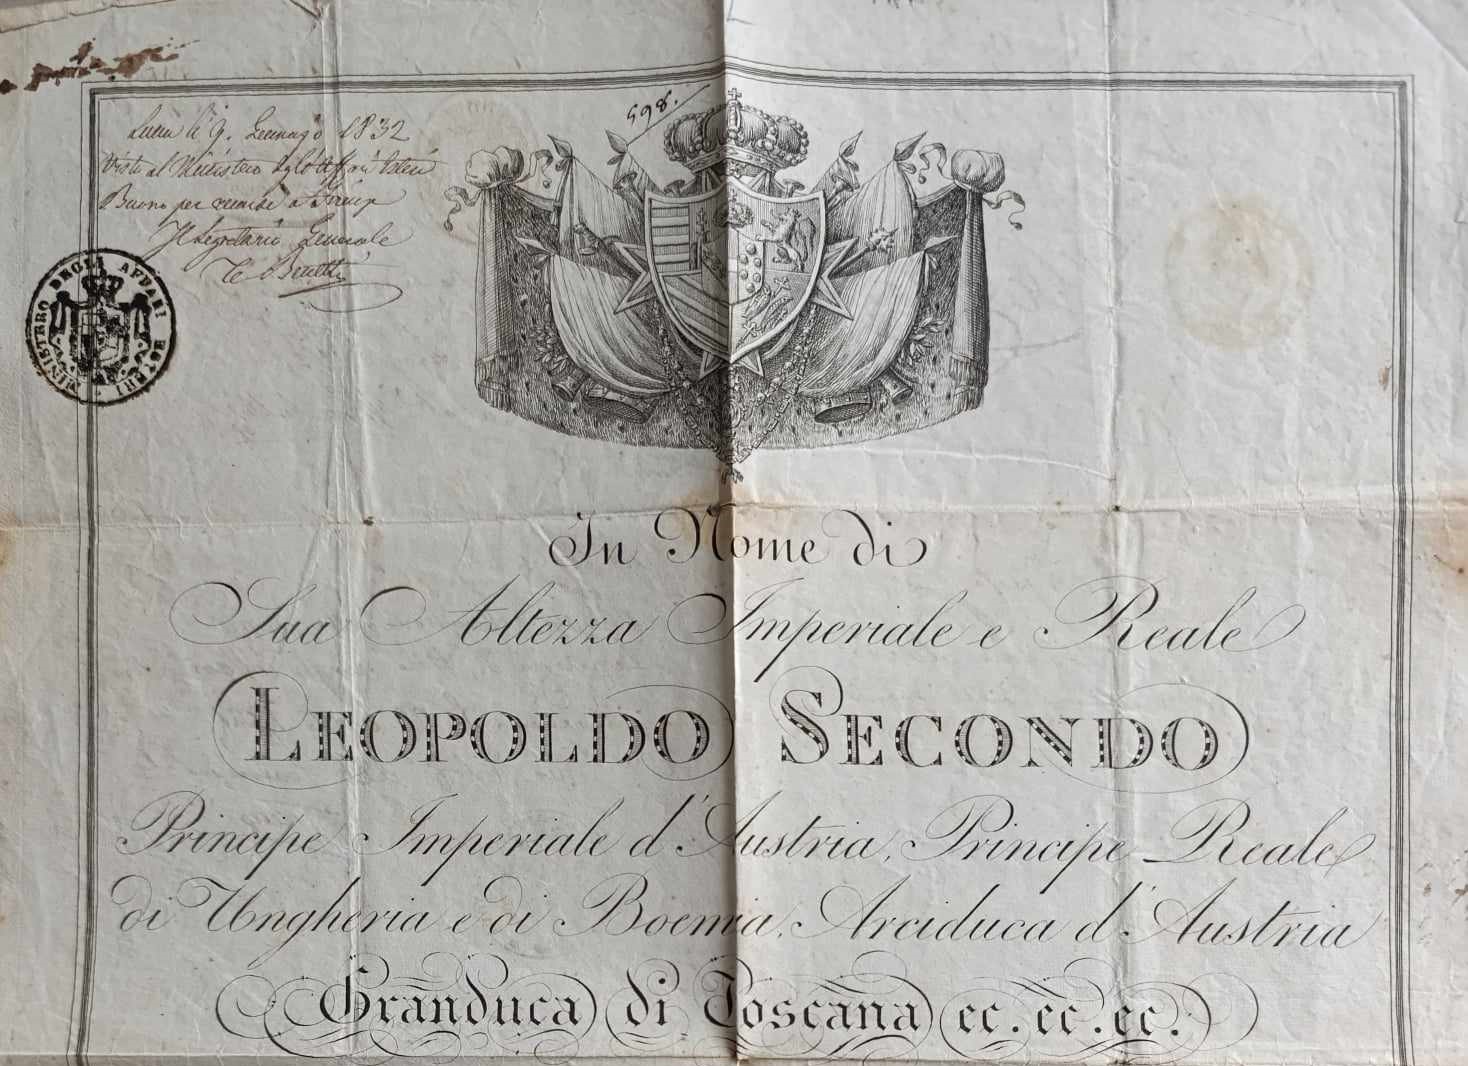 598.
Lucca li 9. Gennajo 1832
Visto al Ministero degli Affari Esteri
Buono per recarsi a Firenze
Il Segretario Generale
MINISTERO DEGLI AFFARI ESTERI
In Nome di
Sua Altezza Imperiale e Reale
LEOPOLDO SECONDO
Principe Imperiale d'Austria, Principe Reale
di Ungheria e di Boemia, Arciduca d'Austria
Granduca di Toscana ec. ec. ec.